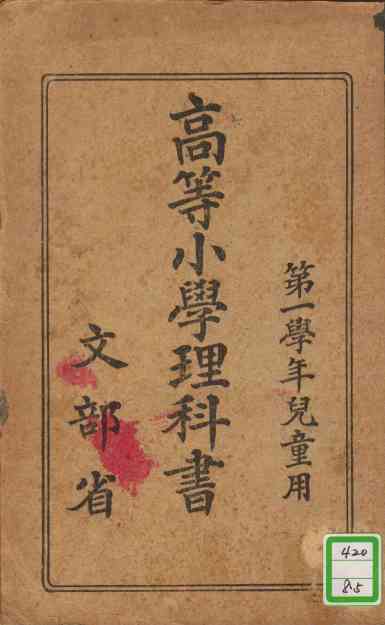 第一學年兒童用
高等小學理科書
文部省
420
8.5